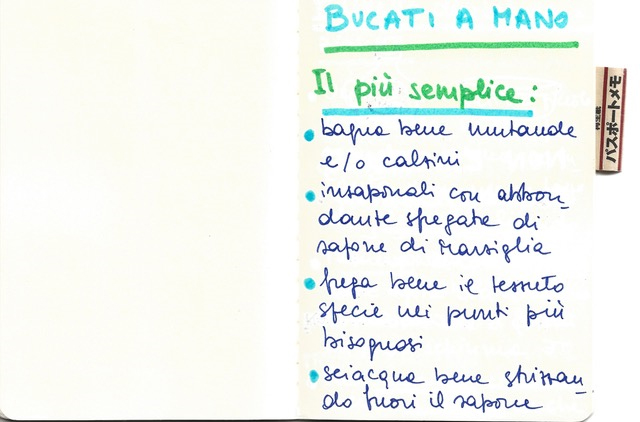 BUCATI A MANO
Il più semplice:
bagna bene mutande
e/o calzini
insaponali con abbon_
dante spegate di
sapone di Marsiglia
frega bene il tessuto
specie nei punti più
bisognosi
sciacqua bene strizzan_
do fuori il sapone
パスポートメモ